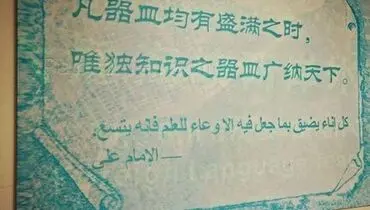 凡器皿均有盛满之时，
唯独知识之器皿广纳天下。
كل إناء يضيق بما جعل فيه الا وعاء للعلم فانه يتسع.
— الامام علي